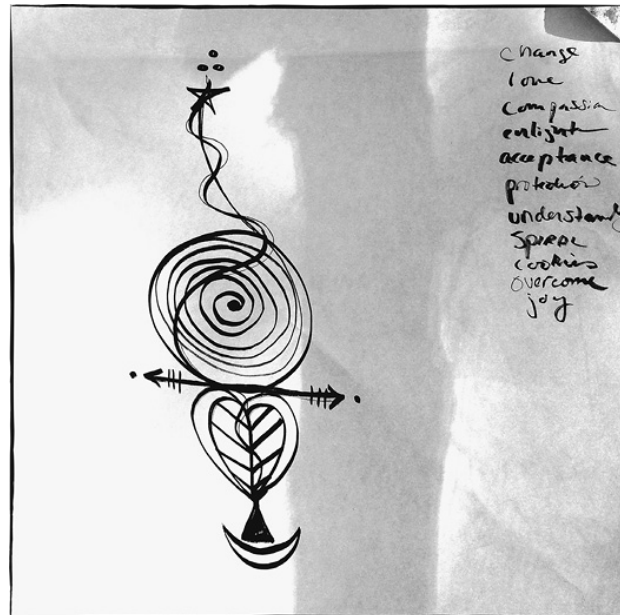 change
love
compassion
enlight
acceptance
protection
understand
SPIRAL
cookies
overcome
joy